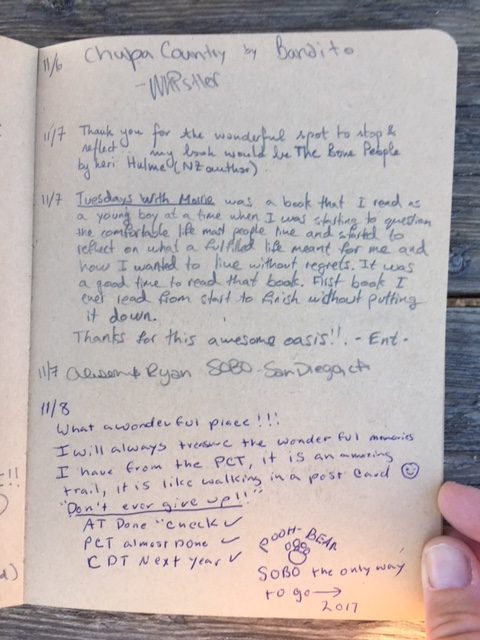 11/6 Chupa Country by Bandito
11/7 Thank you for the wonderful spot to stop &
reflect. my book would be The Bone People
by Keri Hulme (NZ author)
11/7 Tuesdays With Morrie was a book that I read as
a young boy at a time when I was starting to question
the comfortable life most people live and started to
reflect on what a fulfilled life meant for me and
how I wanted to live without regrets. It was
a good time to read that book. First book I
ever read from start to finish without putting
it down.
Thanks for this awesome oasis!!. - Ent -
11/7 & Ryan SOBO - San Diego, CA
11/8
What a wonderful place!!!
I will always treasure the wonderful memories
I have from the PCT, it is an amazing
trail, it is like walking in a post card ☺
"Don't ever give up!!"
AT Done "check ✓
PCT almost Done ✓
CDT Next year ✓
POOH-BEAR
SOBO the only way
to go →
2017